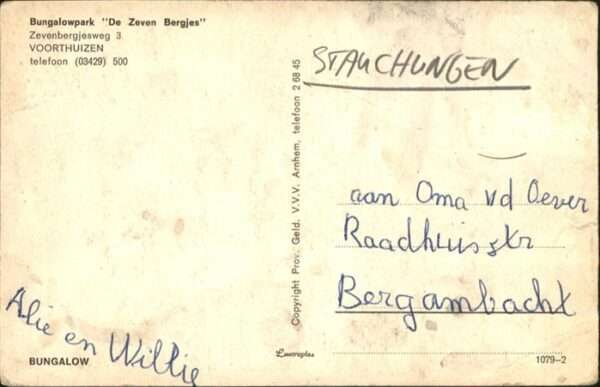 Bungalowpark "De Zeven Bergjes"
Zevenbergjesweg 3
VOORTHUIZEN
telefoon (03429) 500
Alie en Willie
BUNGALOW
Copyright Prov. Geld. V.V.V. Arnhem, telefoon 2 68 45
STAUCHUNGEN
aan Oma vd Oever
Raadhuisstr
Bergambacht
Luxoruplex
1079-2